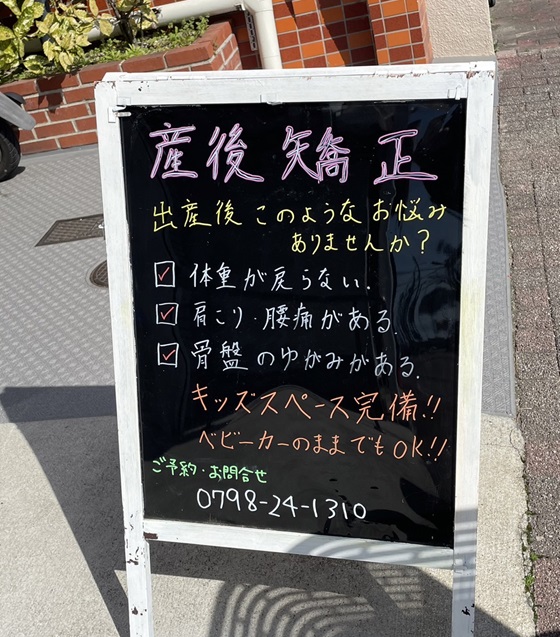 産後 矯正
出産後このようなお悩み
ありませんか?
☑ 体重が戻らない.
☑ 肩こり・腰痛がある.
☑ 骨盤のゆがみがある.
キッズスペース完備!!
ベビーカーのままでもOK!!
ご予約・お問合せ
0798-24-1310